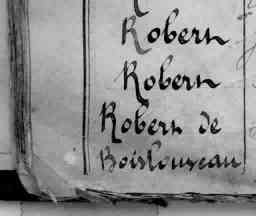 Robern
Robern
Robern de
Boislouveau